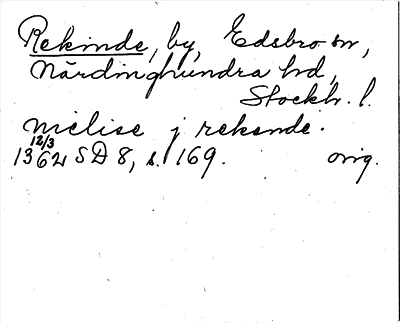 Rekinde, by, Edsbro sn,
Närdinghundra hd,
Stockh. l.
nielise j rekende.
12/3
1362 SD 8, s. 169. orig.